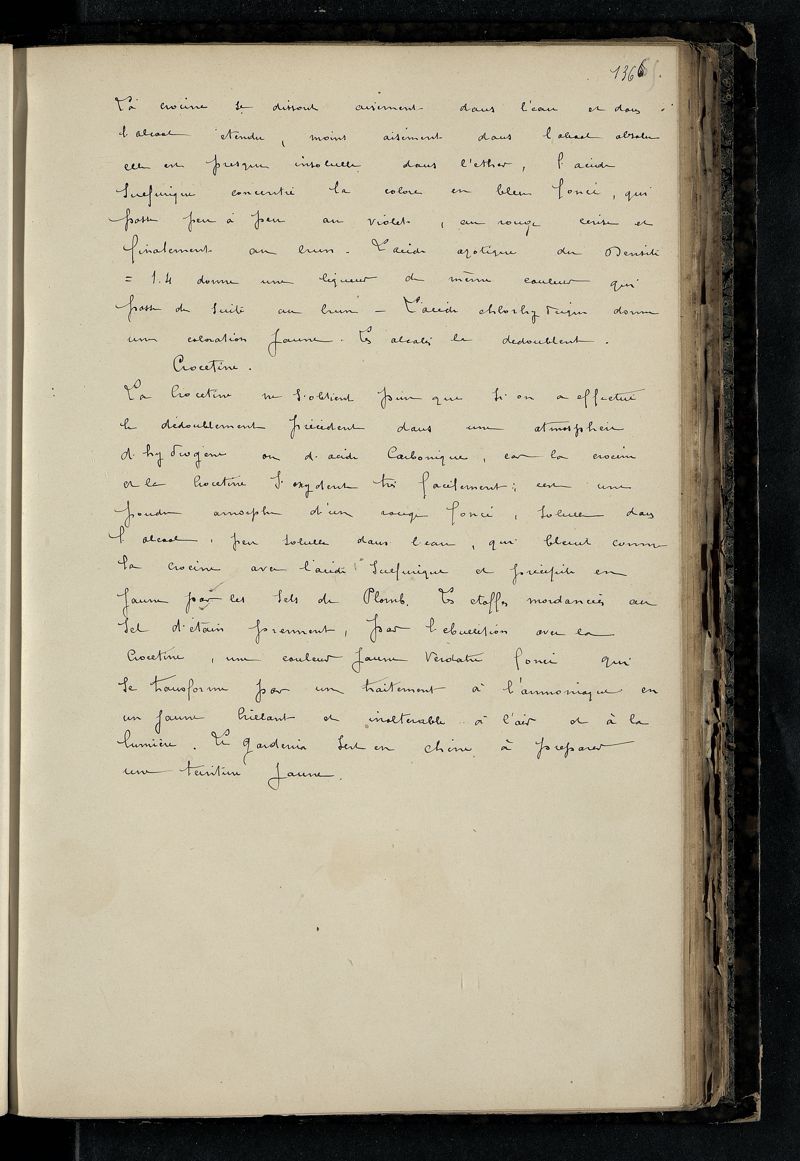 1366
La crocine se dissout aisément dans l'eau et dans
l'alcool étendu, moins aisément dans l'alcool absolu
elle est presque insoluble dans l'ether, l'acide
Sulfurique concentré la colore en bleu foncé, qui
passe peu à peu au violet, au rouge cerise et
finalement au brun. L'acide azotique de Densité
= 1.4 donne une liqueur de même couleur qui
passe de suite au brun - L'acide chlorhydrique donne
une coloration Jaune. Les alcalis la dedoublent.
Crocetine.
La Crocetine ne s'obtient pure que si on a effectué
le dédoublement précédent dans une atmosphère
d'hydrogène ou d'acide Carbonique, car la crocine
et la Crocetine s'oxydent très facilement; c'est une
poudre amorphe d'un rouge foncé, soluble dans
l'alcool, peu soluble dans l'eau, qui bleuit comme
la crocine avec l'acide Sulfurique et précipite en
Jaune par les Sels de Plomb. Les etoffes mordancées au
Sel d'étain prennent, par l'ebullition avec la
Crocetine, une couleur Jaune Verdatre foncé qui
se transforme par un traitement à l'ammoniaque en
un Jaune brillant et inalterable à l'air et à la
lumière. Le gardenia sert en chine à preparer
une teinture Jaune.